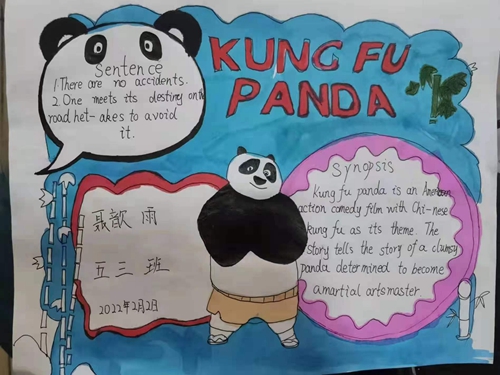 KUNG FU
PANDA
Sentence
1 There are no accidents.
2 One meets its destiny on the
road het-akes to avoid
it.
聂歆雨
五三班
2022年2月2日
Synopsis
Kung fu panda is an American
action comedy film with Chi-nese
kung fu as its theme. The
story tells the story of a clumsy
panda determined to become
amartial artsmaster